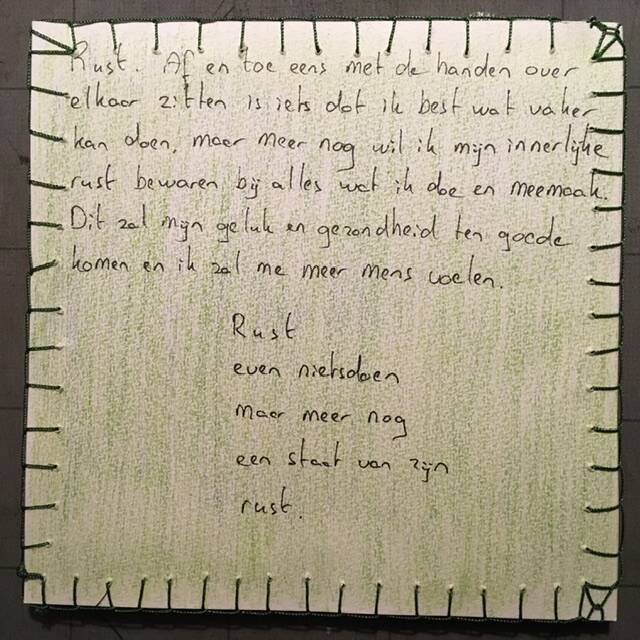 Rust. Af en toe eens met de handen over
elkaar zitten is iets dat ik best wat vaker
kan doen, maar meer nog wil ik mijn innerlijke
rust bewaren bij alles wat ik doe en meemaak.
Dit zal mijn geluk en gezondheid ten goede
komen en ik zal me meer mens voelen.
Rust
even nietsdoen
maar meer nog
een staat van zijn
rust.